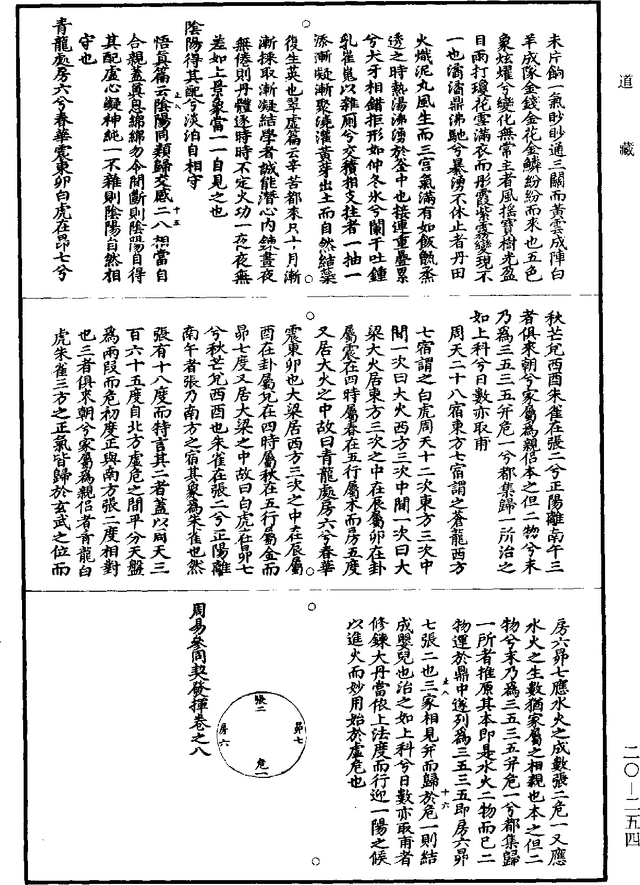 道藏
未片餉一氣眇眇通三關而黃雲成陣白
羊成隊金錢金花金鱗紛紛而來也五色
象炫燿兮變化無常主者風搖寶樹光盈
目雨打瓊花雪滿衣而彤霞紫霧變現不
一也潏潏鼎沸馳兮暴湧不休止者丹田
火熾泥丸風生而三宮氣滿有如飯甑烝
透之時熱湯沸湧於釜中也接連重疊累
兮犬牙相錯拒形如仲冬氷兮闌干吐鍾
乳崔嵬以雜厠兮交積相支拄者一抽一
添漸凝漸聚澆灌黃芽出土而自然結蘂
復生英也翠虛篇云辛苦都來只十月漸
漸採取漸凝結學者誠能潛心内鍊晝夜
無倦則丹體逐時時不定火功一夜夜無
差如上景象當一一自見之也
陰陽得其配兮淡泊自相守
悟真篇云陰陽同類歸交感二八相當自
合親蓋真息綿綿勿令間斷則陰陽自得
其配虛心凝神純一不雜則陰陽自然相
守也
青龍處房六兮春華震東卯白虎在昴七兮
秋芒兌西酉朱雀在張二兮正陽離南午三
者俱來朝兮家屬為親侣本之但二物兮末
乃為三五三五并危一兮都集歸一所治之
如上科兮日數亦取甫
周天二十八宿東方七宿謂之蒼龍西方
七宿謂之白虎周天十二次東方三次中
間一次曰大火西方三次中間一次曰大
梁大火居東方三次之中在辰屬卯在卦
屬震在四時屬春在五行屬木而房五度
又居大火之中故曰青龍處房六兮春華
震東卯也大梁居西方三次之中在辰屬
酉在卦屬兌在四時屬秋在五行屬金而
昴七度又居大梁之中故曰白虎在昴七
兮秋芒兌西酉也朱雀在張二兮正陽離
南午者張乃南方之宿其象為朱雀也然
張有十八度而特言其二者蓋以周天三
百六十五度自北方虛危之間平分天盤
為兩段而危初度正與南方張二度相對
也三者俱來朝兮家屬為親侣者青龍白
虎朱雀三方之正氣皆歸於玄武之位而
房六昴七應水火之成數張二危一又應
水火之生數猶家屬之相親也本之但二
物兮末乃為三五三五并危一兮都集歸
一所者推原其本即是水火二物而已二
物運於鼎中遂列為三五三五即房六昴
七張二也三家相見并而歸於危一則結
成嬰兒也治之如上科兮日數亦取甫者
修鍊大丹當依上法度而行迎一陽之候
以進火而妙用始於虛危也
張二
昴七
房六
危一
周易參同契發揮卷之八
之八 十五
之八 十六
二〇—二五四